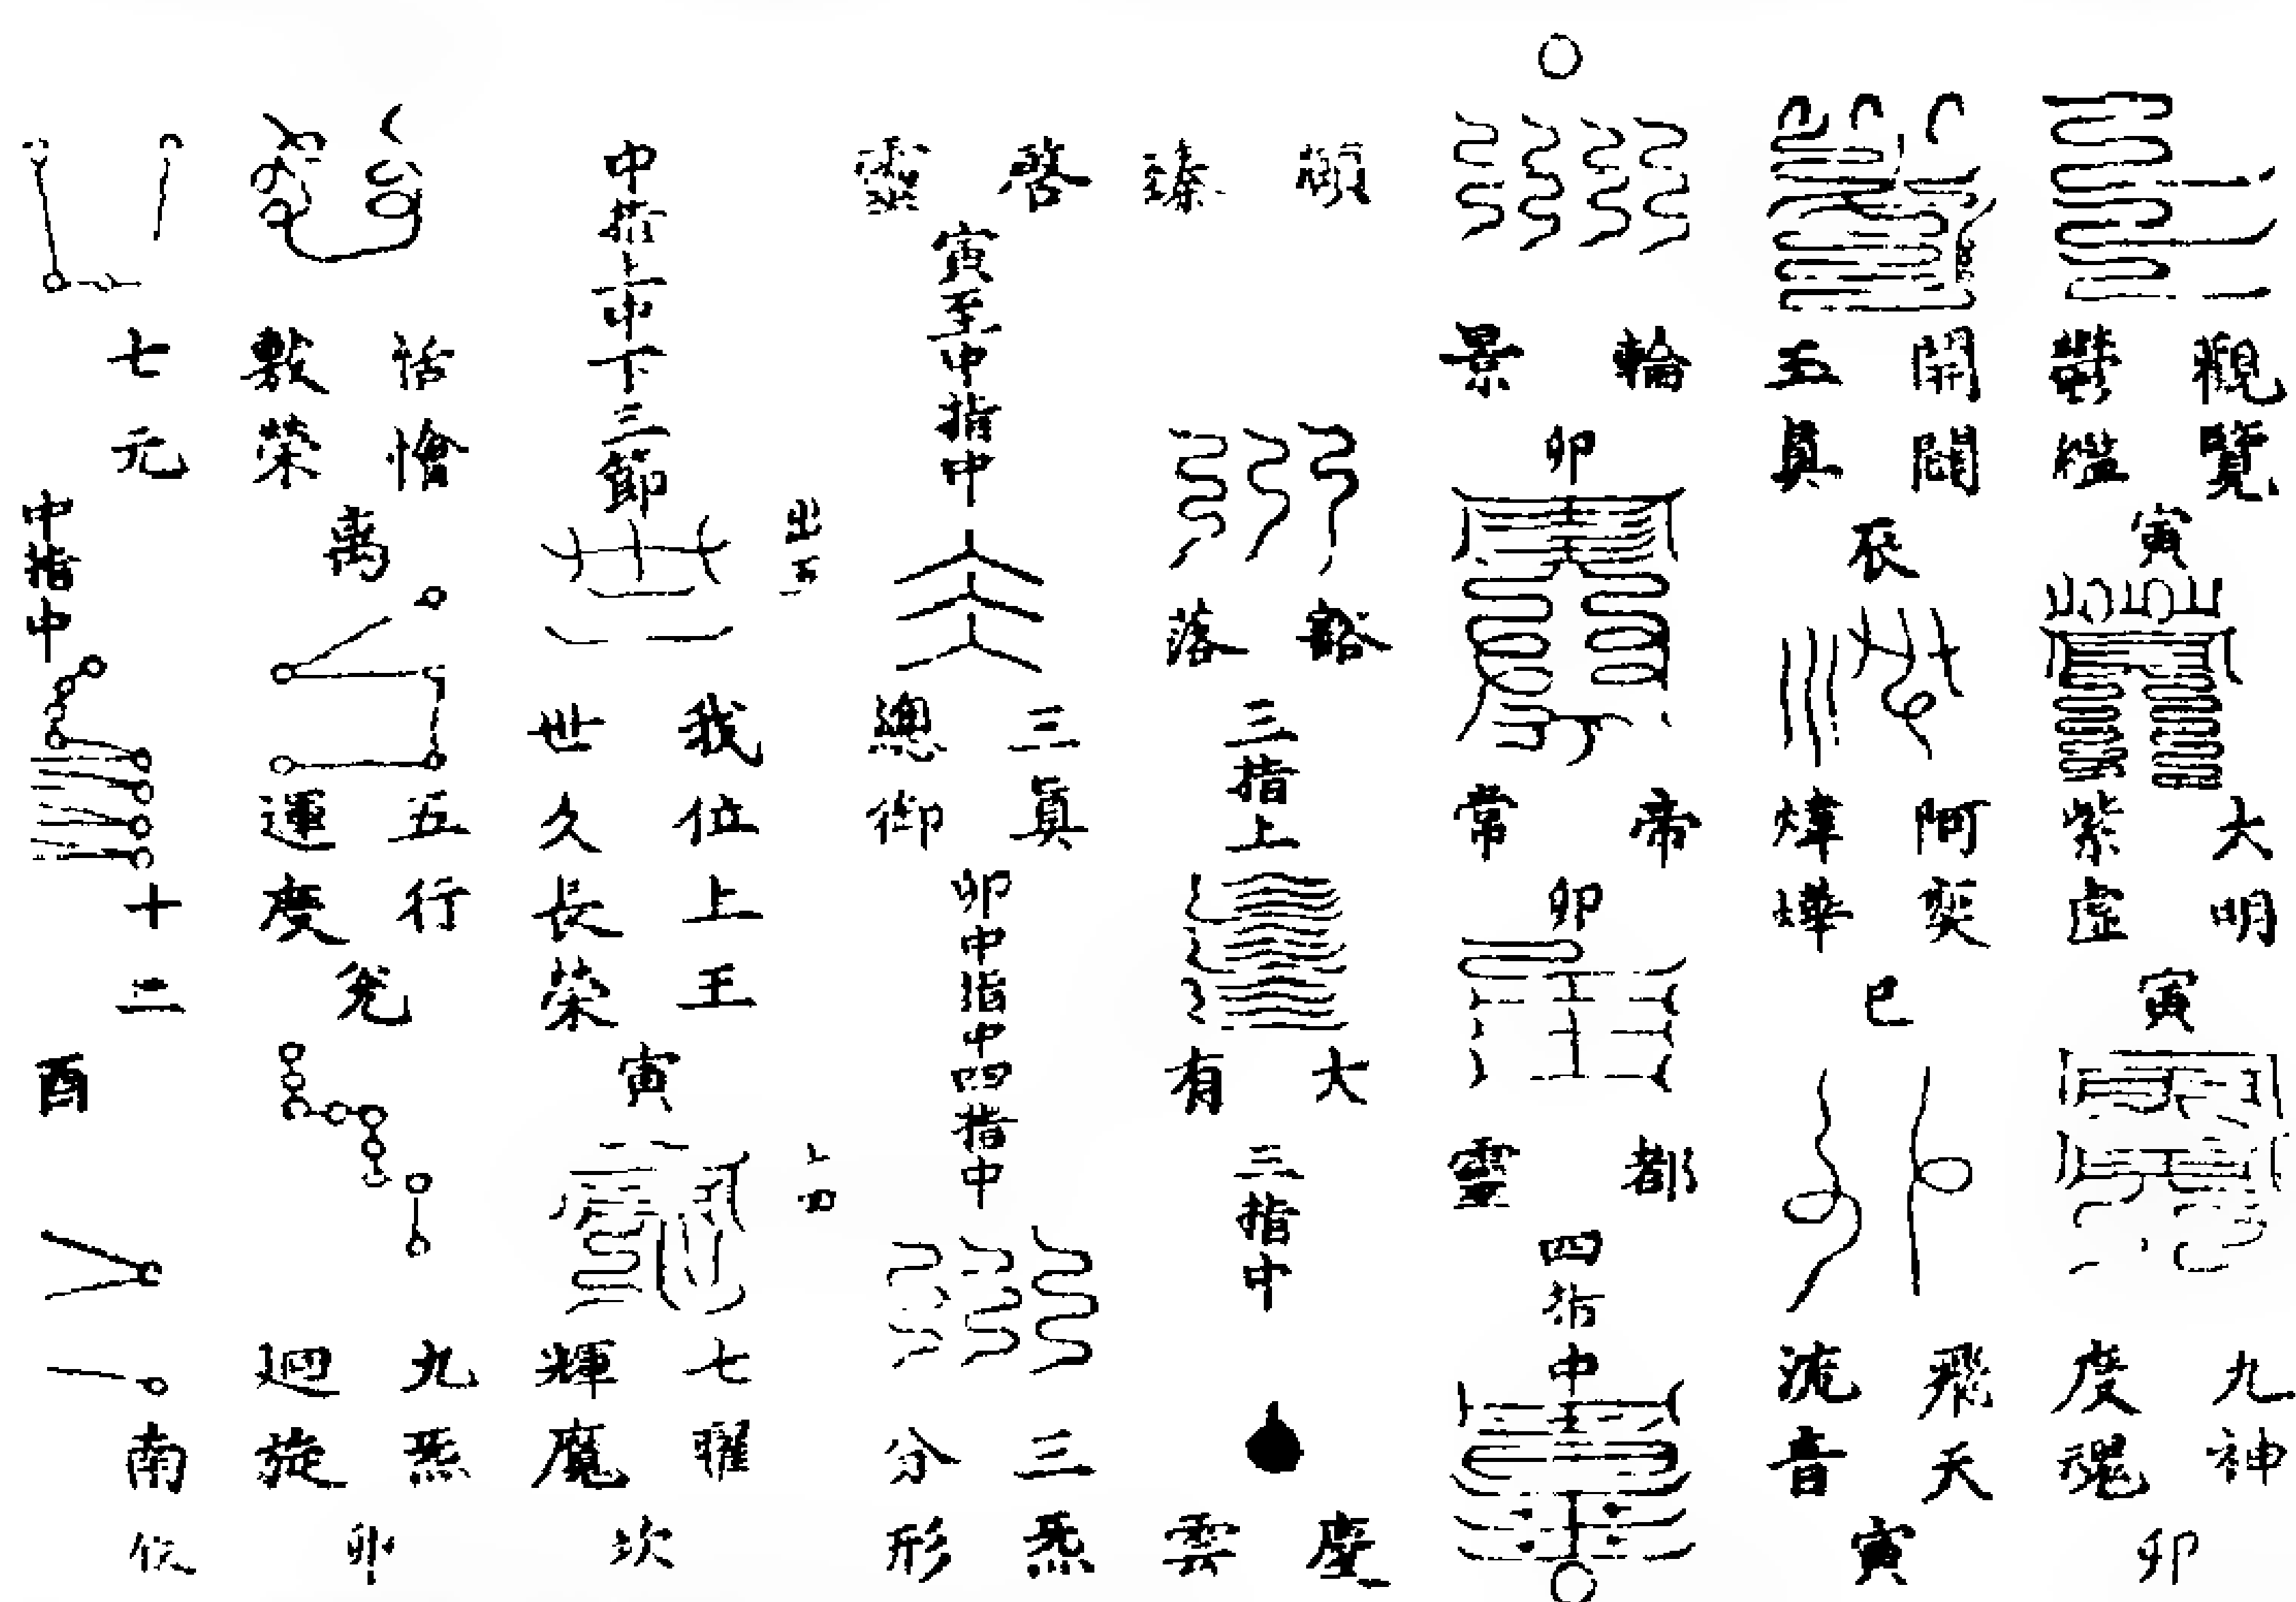 觀覽
鬱𥁞
寅
大明
紫虛
寅
九神
度魂
卯
開闓
五真
辰
阿奕
煒燁
巳
飛天
流音
寅
輪
景
卯
帝
常
卯
都
靈
四指中
願
臻
豁
落
三指上
大
有
三指中
慶
雲
啓
靈
寅至中指中
三真
總御
卯中指中四指中
三炁
分形
出五
上四
中指上中下三節
我位上王
世久長榮
寅
七曜
輝魔
坎
恬憺
敷榮
离
五行
運度
兌
九炁
迴旋
卯
七元
中指中
十二
酉
南